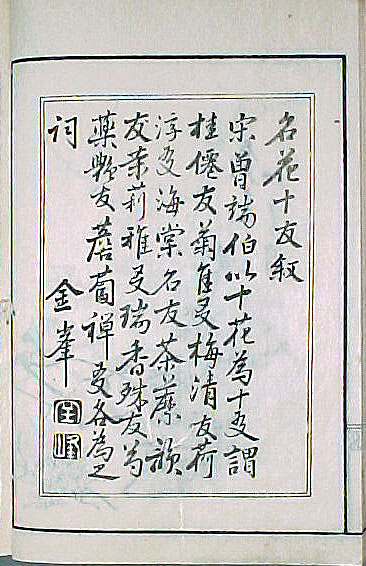 名花十友叙
宋曾端伯以十花為十友謂
桂僊友菊佳友梅清友荷
浮友海棠名友茶蘼韻
友茉莉雅友瑞香殊友芍
藥艷友薝蔔禅友各為之
词
金峯